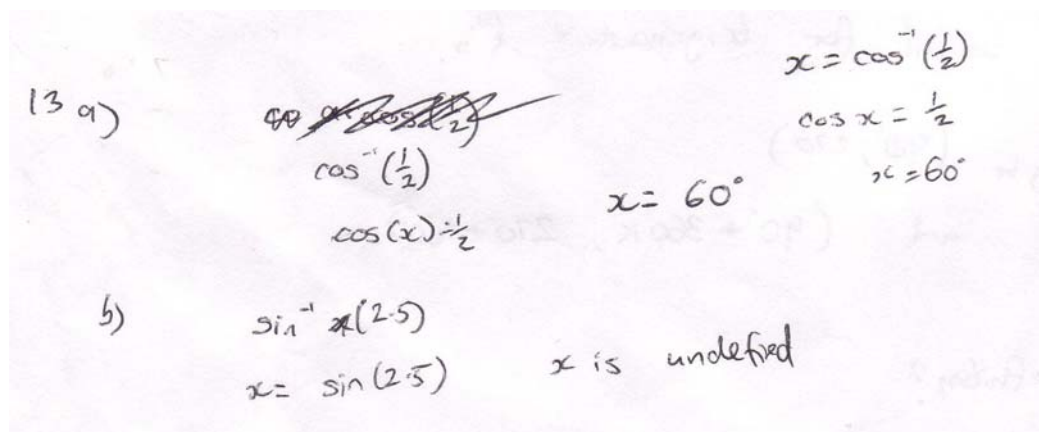 13 a)
cos⁻¹(1/2)
cos(x) = 1/2
x = 60°
x = cos⁻¹(1/2)
cos x = 1/2
x = 60°
b) sin⁻¹ (2.5)
x = sin(2.5)
x is undefined